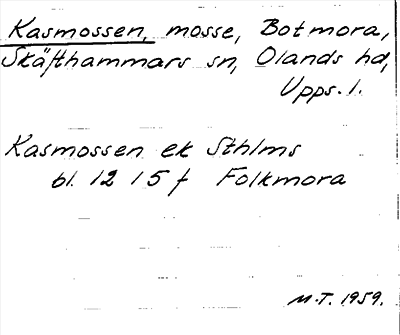 Kasmossen, mosse, Botmora,
Skäfthammars sn, Olands hd,
Upps. l.
Kasmossen ek Sthlms
bl. 12 1 5 f Folkmora
M-T. 1959.